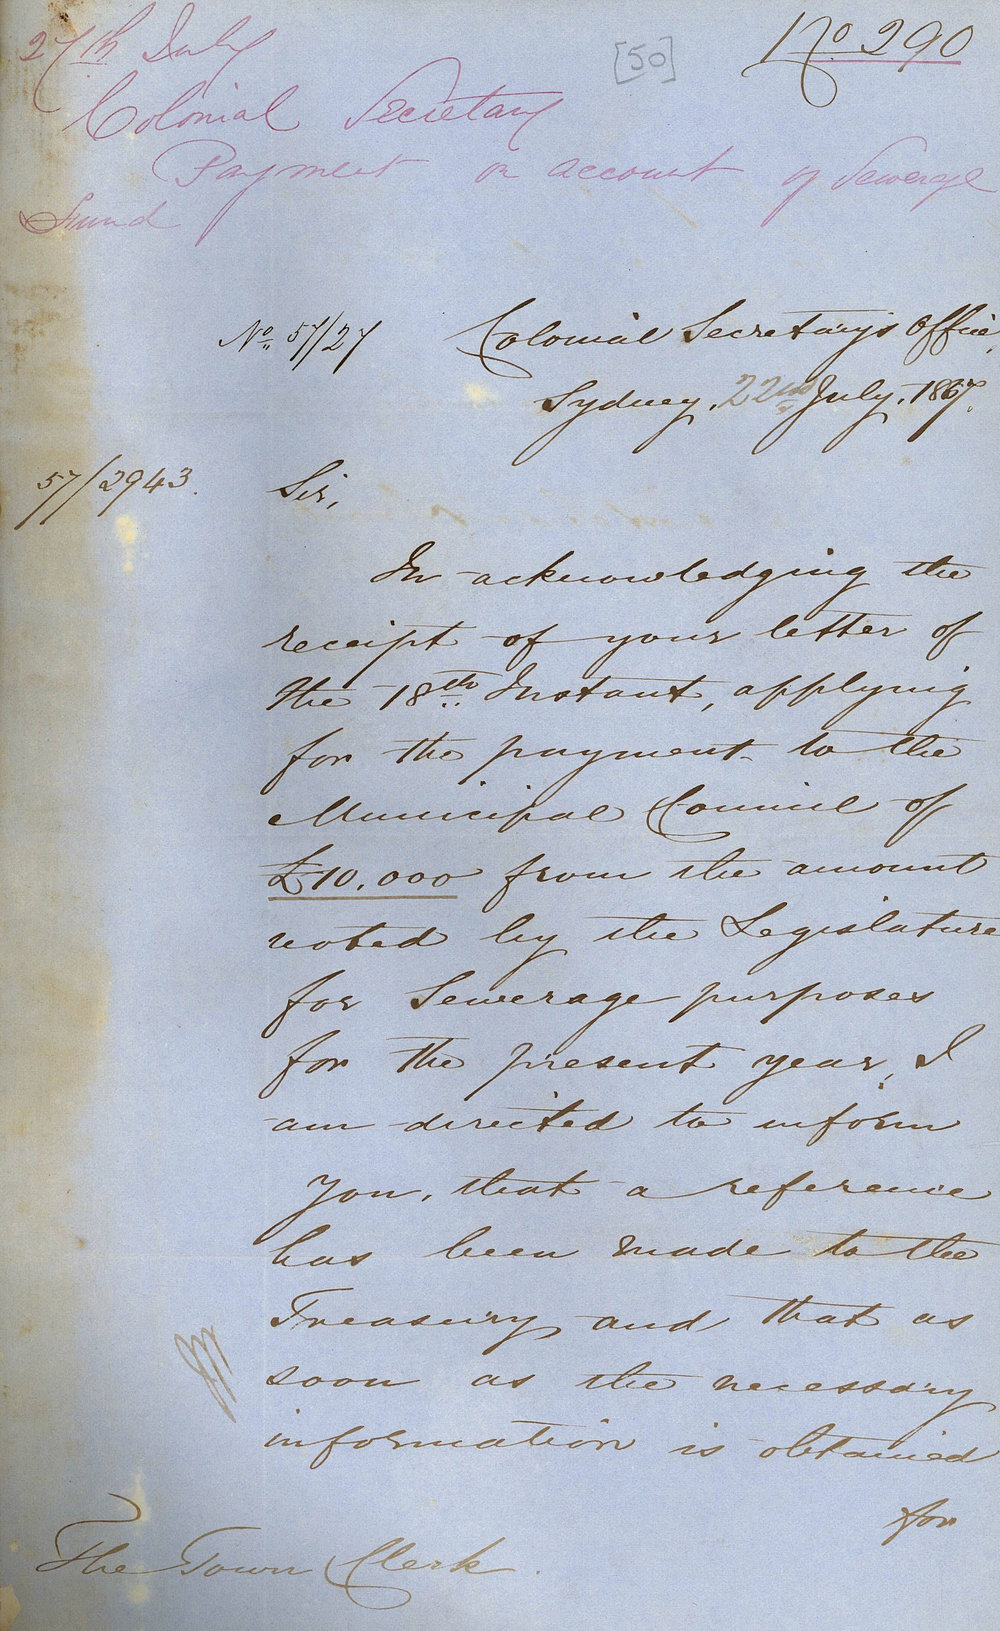 27th July
[50]
No. 290
Colonial Secretary
Payment on account of Sewerage
Fund
No. 57/27
Colonial Secretary's Office,
Sydney, 22nd July, 1857.
57/2943.
Sir,
In acknowledging the
receipt of your letter of
the 18th Instant, applying
for the payment to the
Municipal Council of
£10.000 from the amount
voted by the Legislature
for Sewerage purposes
for the present year, I
am directed to inform
you, that a reference
has been made to the
Treasury and that as
soon as the necessary
information is obtained
for
The Town Clerk.